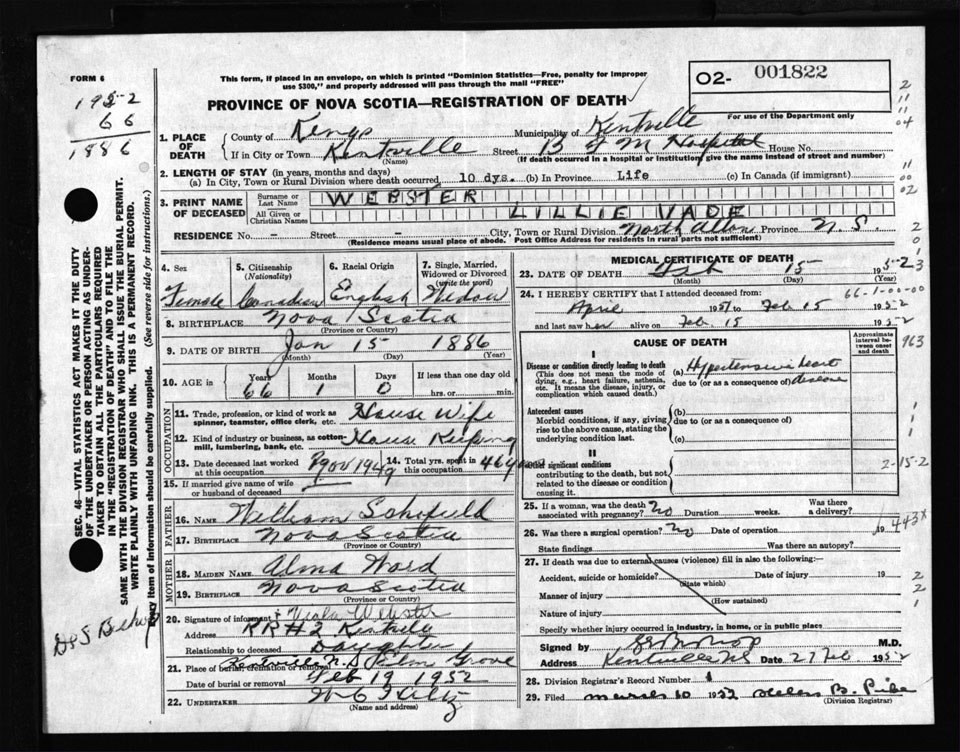 FORM 6
This form, if placed in an envelope, on which is printed "Dominion Statistics—Free, penalty for improper
use $300," and properly addressed will pass through the mail "FREE"
02- 001822
For use of the Department only
1952
66
1886
PROVINCE OF NOVA SCOTIA—REGISTRATION OF DEATH
1. PLACE OF DEATH
County of Kings Municipality of Kentville
If in City or Town Kentville Street B F M Hospital House No.
(Name) (If death occurred in a hospital or institution, give the name instead of street and number)
2. LENGTH OF STAY (in years, months and days)
(a) In City, Town or Rural Division where death occurred, 10 dys. (b) In Province Life (c) In Canada (if immigrant)
3. PRINT NAME OF DECEASED
Surname or Last Name WEBSTER
All Given or Christian Names LILLIE VADE
RESIDENCE No. - Street - City, Town or Rural Division North Alton Province N. S.
(Residence means usual place of abode. Post Office Address for residents in rural parts not sufficient)
4. Sex Female
5. Citizenship (Nationality) Canadian
6. Racial Origin English
7. Single, Married, Widowed or Divorced (write the word) Widow
8. BIRTHPLACE Nova Scotia
(Province or Country)
9. DATE OF BIRTH Jan 15 1886
(Month) (Day) (Year)
10. AGE in Years Months Days If less than one day old
66 1 0 hrs. or min.
OCCUPATION
11. Trade, profession, or kind of work as spinner, teamster, office clerk, etc. House Wife
12. Kind of industry or business, as cotton-mill, lumbering, bank, etc. House Keeping
13. Date deceased last worked at this occupation Nov 1949
14. Total yrs. spent in this occupation 46 years
15. If married give name of wife or husband of deceased
FATHER
16. NAME William Schofield
17. BIRTHPLACE Nova Scotia
(Province or Country)
MOTHER
18. MAIDEN NAME Alma Ward
19. BIRTHPLACE Nova Scotia
(Province or Country)
20. Signature of informant Webster
Address RR#2 Kentville
Relationship to deceased Daughter
21. Place of burial, cremation or removal Kentville N.S. Elm Grove
Date of burial or removal Feb 19 1952
22. UNDERTAKER
(Name and address)
MEDICAL CERTIFICATE OF DEATH
23. DATE OF DEATH Feb 15 1952
(Month) (Day)
24. I HEREBY CERTIFY that I attended deceased from: 66-1-00-00
April 1951 to Feb 15 1952
and last saw her alive on Feb 15 1952
CAUSE OF DEATH
Approximate interval between onset and death
963
I
Disease or condition directly leading to death
(This does not mean the mode of dying, e.g., heart failure, asthenia, etc. It means the disease, injury, or complication which caused death.)
(a) Hypertensive heart
due to (or as a consequence of) disease
Antecedent causes
Morbid conditions, if any, giving rise to the above cause, stating the underlying condition last.
(b)
due to (or as a consequence of)
(c)
II
Other significant conditions
contributing to the death, but not related to the disease or condition causing it.
2-15-2
25. If a woman, was the death associated with pregnancy? No Duration weeks. Was there a delivery?
26. Was there a surgical operation? No Date of operation 19
443X
State findings Was there an autopsy?
27. If death was due to external causes (violence) fill in also the following:
Accident, suicide or homicide? Date of injury 19
(State which)
Manner of injury
(How sustained)
Nature of injury
Specify whether injury occurred in industry, in home, or in public place
Signed by M.D.
Address Kentville NS Date 27 Feb 1952
28. Division Registrar's Record Number 1
29. Filed March 10 1952 Helen B.
(Division Registrar)
SEC. 46—VITAL STATISTICS ACT MAKES IT THE DUTY
OF THE UNDERTAKER OR PERSON ACTING AS UNDER-
TAKER TO OBTAIN ALL THE PARTICULARS REQUIRED
IN THE "REGISTRATION OF DEATH" AND TO FILE THE
SAME WITH THE DIVISION REGISTRAR WHO SHALL ISSUE THE BURIAL PERMIT.
WRITE PLAINLY WITH UNFADING INK. THIS IS A PERMANENT RECORD.
Every item of information should be carefully supplied. (See reverse side for instructions.)